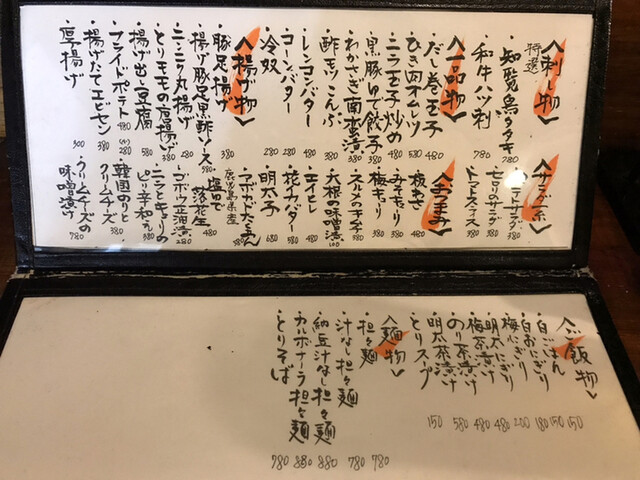 〈刺し物〉
特選
・知覧鳥タタキ 780
・和牛ハツ刺 780
〈一品物〉
・だし巻玉子 480
・ひき肉オムレツ 580
・ニラ玉子炒め 480
・黒豚ゆで餃子 380
・わかさぎ南蛮漬 380
・酢モツ
・こんぶ
・レンコンバター 480
・コーンバター 280
・冷奴 280
〈揚げ物〉
・豚足揚げ 380
・揚げ豚足黒酢ソース 580
・ニンニク丸揚げ 280
・とりモモの唐揚げ 380
・揚げ出し豆腐 580
・フライドポテト 480
・揚げたてエビセン 280
・厚揚げ 300
〈サラダ系〉
・セロリのサラダ 380
・トマトスライス 380
〈おつまみ〉
・板わさ 480
・みそキュウリ 380
・梅キュウリ 380
・スルメの子 380
・大根の味噌漬 100
・エイヒレ 380
・花イカダー 580
・明太子 680
・アボカドたまごん 380
鹿児島県産
・塩ゆで落花生 480
・ゴボウ正油漬 280
・ニラときゅうりのピリ辛和え 380
・韓国のりとクリームチーズ 380
・クリームチーズの味噌漬け 780
〈ご飯物〉
・白ごはん 150
・白おにぎり 150
・梅にぎり 180
・明太にぎり 200
・梅茶漬け 480
・のり茶漬け 480
・明太茶漬け 580
・とりスープ 150
〈麺物〉
・担々麺 780
・汁なし担々麺 780
・納豆汁なし担々麺 880
・カルボナーラ担々麺 880
・とりそば 780